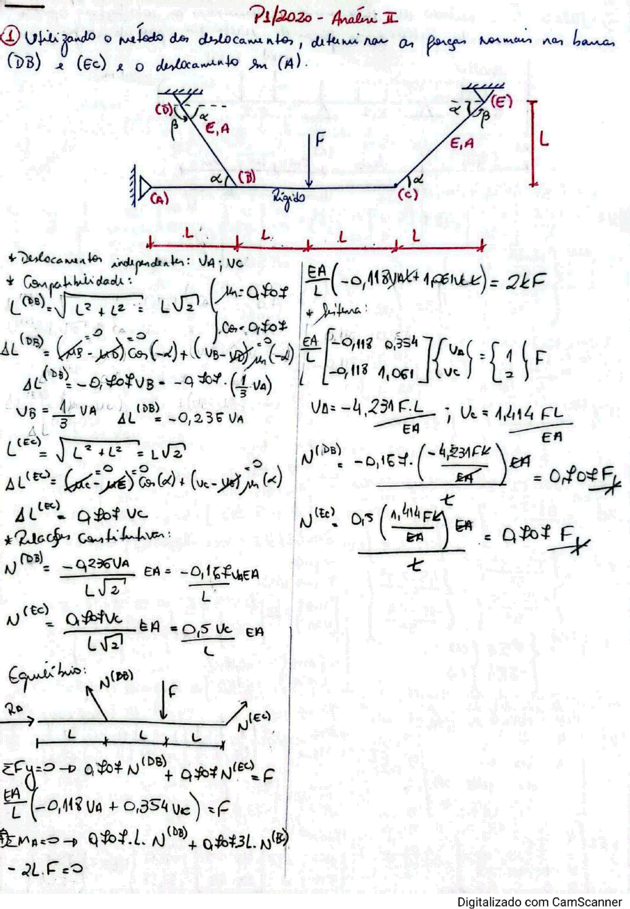 P1/2020 - Análise II
① Utilizando o método dos deslocamentos, determinar as forças normais nas barras
(DB) e (EC) e o deslocamento em (A).
(D) α (E)
β E,A F α β
E,A L
α (B) α
(A) Rígido (C)
L L L L
* Deslocamentos independentes: VA; VC
* Compatibilidade:
L^(DB) = √(L² + L²) = L√2 { sen = 0,707
cos = 0,707
ΔL^(DB) = (μB - μD)^=0 cos(-α) + (VB - VD)^=0 sen(-α)
ΔL^(DB) = -0,707 VB = -0,707 · (1/3 VA)
VB = 1/3 VA ΔL^(DB) = -0,236 VA
L^(EC) = √(L² + L²) = L√2
ΔL^(EC) = (μC - μE)^=0 cos(α) + (VC - VE)^=0 sen(α)
ΔL^(EC) = 0,707 VC
* Relações constitutivas:
N^(DB) = -0,236VA / L√2 EA = -0,167VAEA / L
N^(EC) = 0,707VC / L√2 EA = 0,5 VC / L EA
Equilíbrio:
N^(DB) F
N^(EC)
L L L
ΣFy=0 → 0,707 N^(DB) + 0,707 N^(EC) = F
EA/L (-0,118 VA + 0,354 VC) = F
ΣMA=0 → 0,707.L. N^(DB) + 0,707 3L. N^(B)
- 2L.F = 0
EA/L (-0,118VAL + 1,061VCL) = 2LF
EA/L [-0,118 0,354 -0,118 1,061] {VA VC} = {1 2} F
VA = -4,231F.L / EA ; VC = 1,414 FL / EA
N^(DB) = -0,167. (-4,231FL / EA) EA / L = 0,707F
N^(EC) = 0,5 (1,414FL / EA) EA / L = 0,707 F
Digitalizado com CamScanner